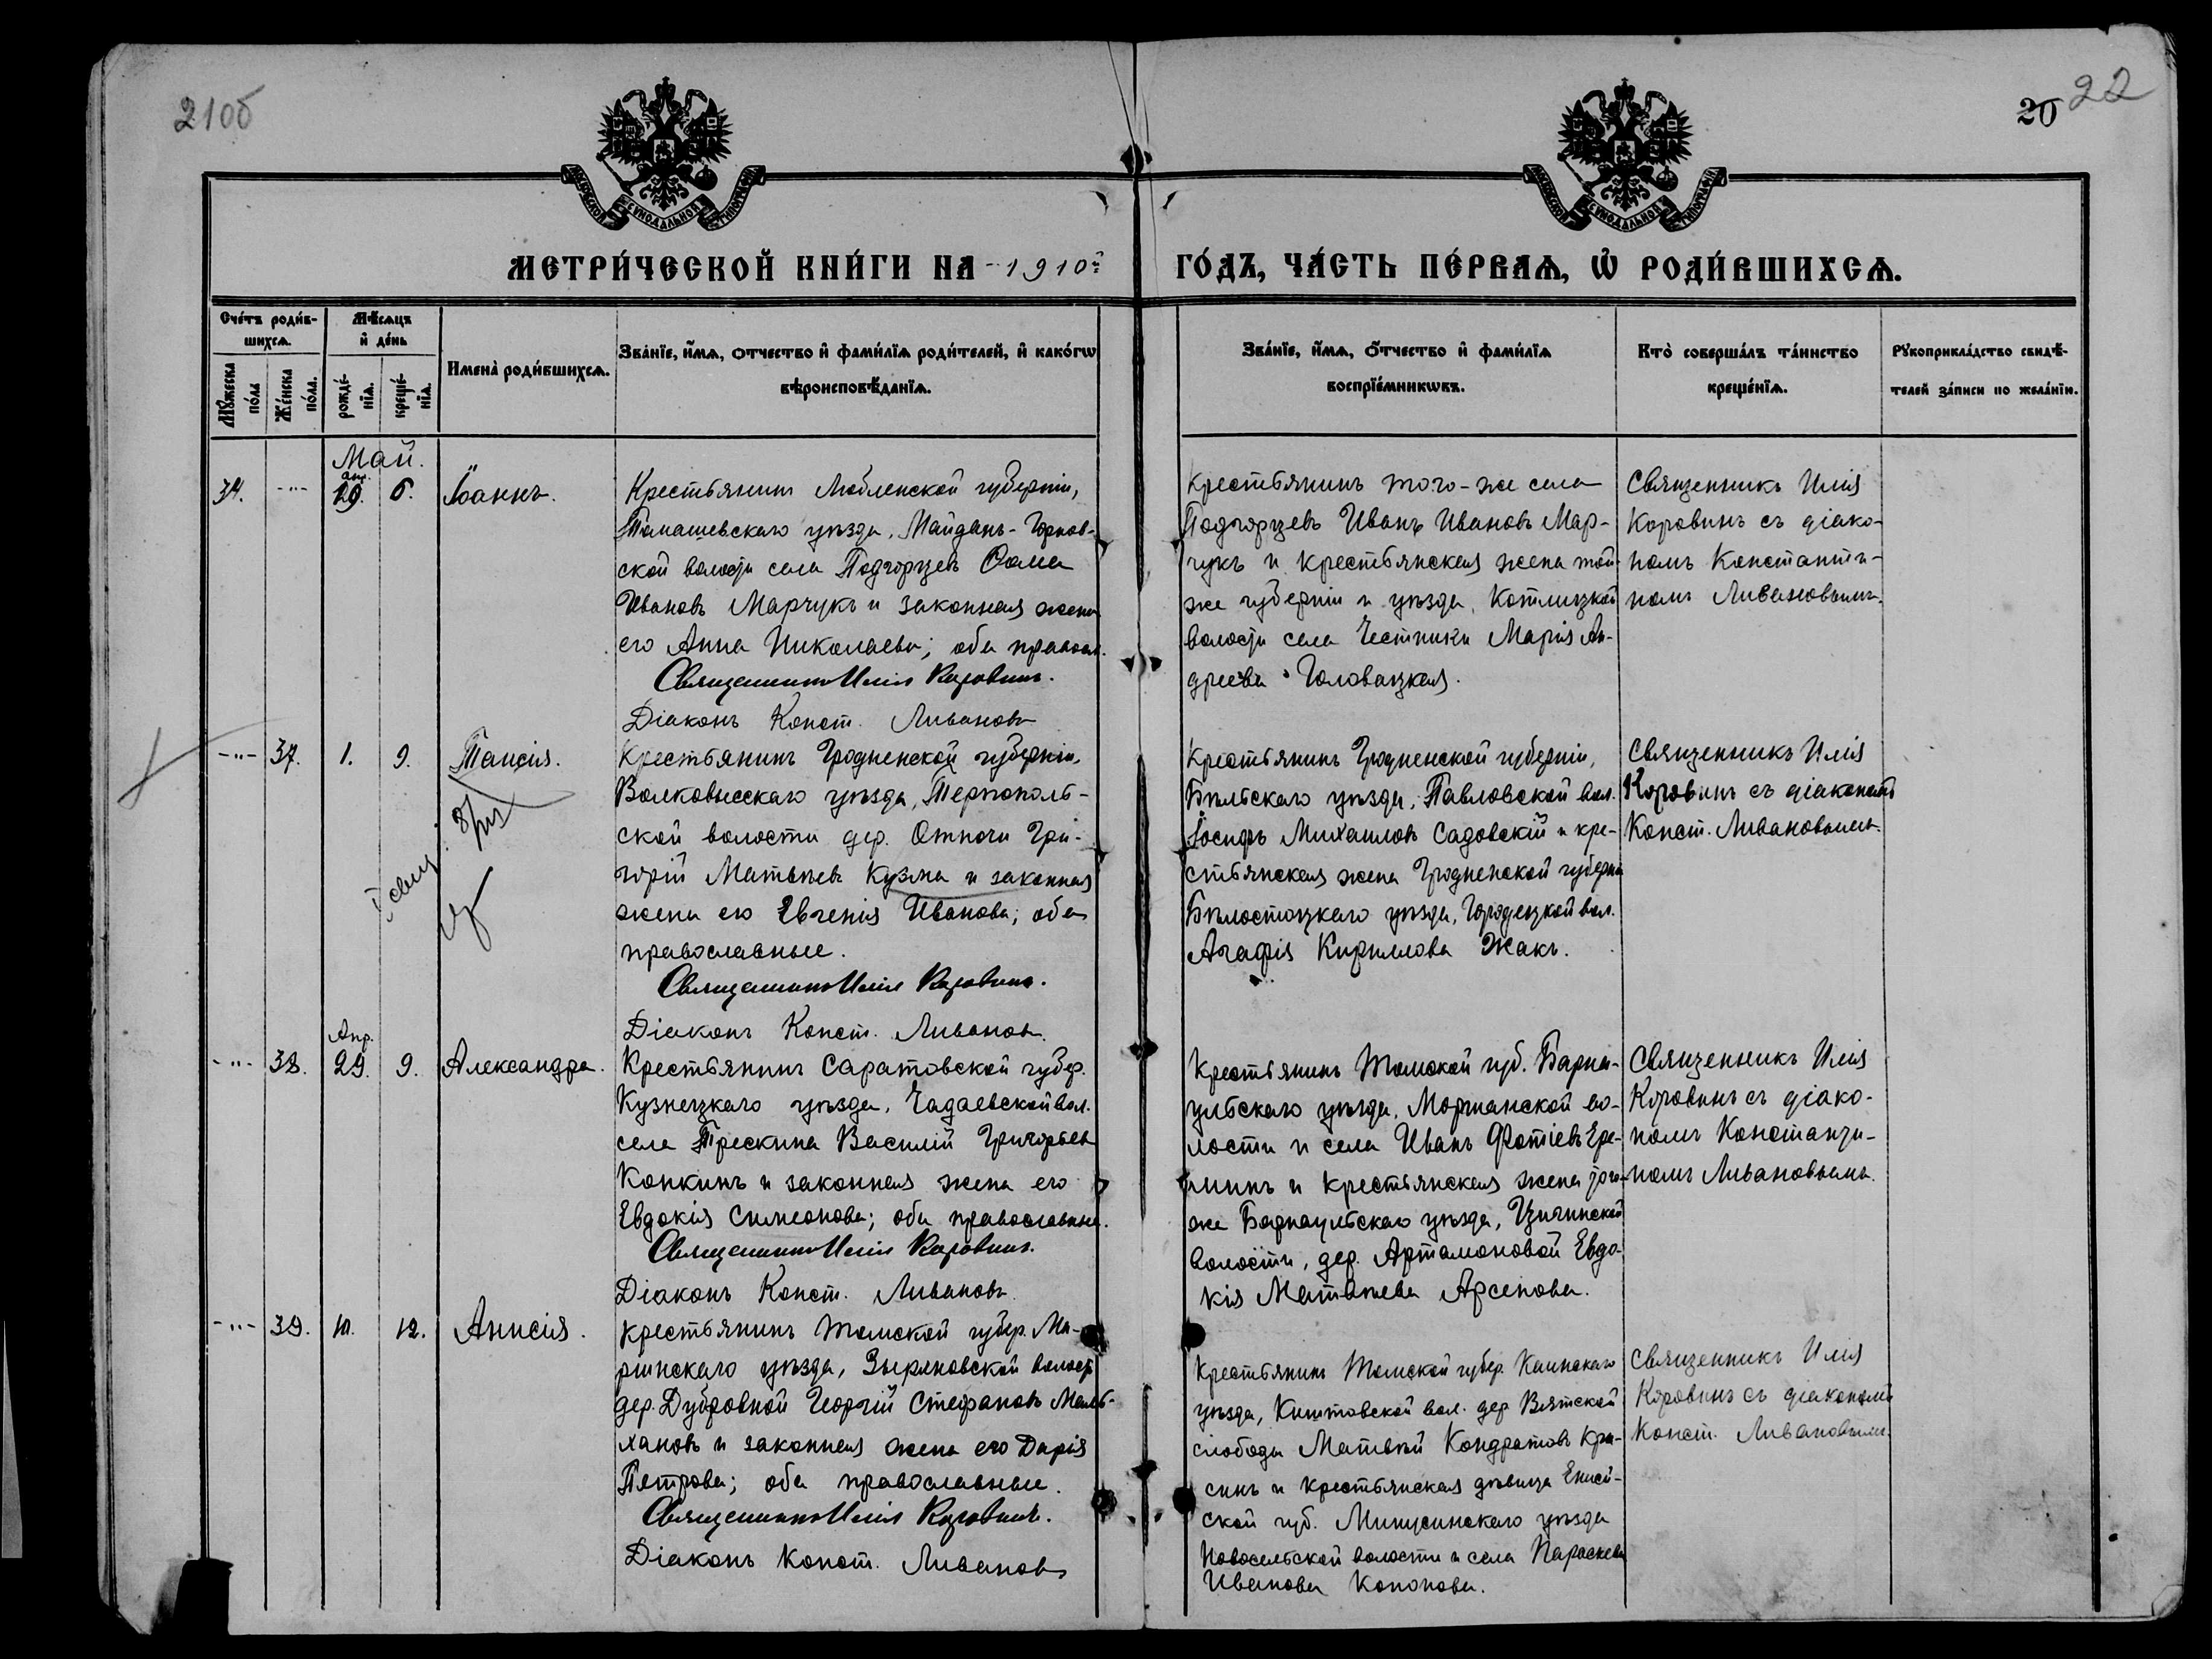 21об
20 22
МОСКОВСКОЙ СѴНОДАЛЬНОЙ ТИПОГРАФІИ
МОСКОВСКОЙ СѴНОДАЛЬНОЙ ТИПОГРАФІИ
МЕТРИ́ЧЕСКОЙ КНИ́ГИ НА 1910й ГО́ДЪ, ЧА́СТЬ ПЕ́РВАѦ, Ѡ РОДИ́ВШИХСѦ.
Сче́тъ роди́в-
шихсѧ.
Мꙋ́жеска по́ла
Же́нска по́ла.
Мѣ́сѧцъ
и де́нь
рожде́-
нїѧ.
креще́-
нїѧ.
Имена̀ роди́вшихсѧ.
Зва́нїе, и́мѧ, о́тчество и фами́лїѧ роди́телей, и како́гѡ
вѣроисповѣ́данїѧ.
Зва́нїе, и́мѧ, о́тчество и фами́лїѧ
воспрїе́мникѡвъ.
Кто̀ соверша́лъ та́инство
креще́нїѧ.
Рꙋкоприкла́дство свидѣ́-
телей за́писи по жела́нїю.
Май.
34. -"- апр. 29. 6. Іоаннъ.
Крестьянинъ Люблинской губерніи,
Томашевскаго уѣзда, Майданъ-Горнов-
ской волости села Подгорцевъ Ѳома
Ивановъ Марчукъ и законная жена
его Анна Николаева; оба правосл.
Священникъ Илія Коровинъ.
Діаконъ Конст. Ливановъ
Крестьянинъ того-же села
Подгорцевъ Иванъ Ивановъ Мар-
чукъ и крестьянская жена той-
же губерніи и уѣзда, Котлицкой
волости села Честники Марія Ан-
дреева Головацкая.
Священникъ Илія
Коровинъ съ діако-
номъ Константи-
номъ Ливановымъ.
-"- 37. 1. 9. Таисія.
Крестьянинъ Гродненской губерніи,
Волковысскаго уѣзда, Тернополь-
ской волости дер. Отноги Гри-
горій Матвѣевъ Кузма и законная
жена его Евгенія Иванова; оба
православные.
Священникъ Илія Коровинъ.
Діаконъ Конст. Ливановъ.
Крестьянинъ Гродненской губерніи,
Бѣльскаго уѣзда, Павловской вол.
Іосифъ Михаиловъ Садовскій и кре-
стьянская жена Гродненской губерніи
Бѣлостоцкаго уѣзда, Городецкой вол.
Агафія Кириллова Жакъ.
Священникъ Илія
Коровинъ съ діакономъ
Конст. Ливановымъ.
-"- 38. Апр. 29. 9. Александра.
Крестьянинъ Саратовской губер.
Кузнецкаго уѣзда, Чадаевской вол.
села Трескина Василій Григорьевъ
Конкинъ и законная жена его
Евдокія Симеонова; оба православные.
Священникъ Илія Коровинъ.
Діаконъ Конст. Ливановъ.
Крестьянинъ Томской губ. Барна-
ульскаго уѣзда, Моршанской во-
лости и села Иванъ Фотіевъ Ере-
минъ и крестьянская жена того-
же Барнаульскаго уѣзда,
волости, дер. Артамоновой Евдо-
кія Матвѣева Арсенова.
Священникъ Илія
Коровинъ съ діако-
номъ Константи-
номъ Ливановымъ.
-"- 39. 10. 12. Анисія.
Крестьянинъ Томской губер. Ма-
ріинскаго уѣзда, Зыряновской волости
дер. Дубровной Георгій Стефановъ Маль-
хановъ и законная жена его Дарія
Петрова; оба православные.
Священникъ Илія Коровинъ.
Діаконъ Конст. Ливановъ
Крестьянинъ Томской губер. Каинскаго
уѣзда, Киштовской вол. дер. Вятской
слободы Матвѣй Кондратовъ Кра-
синъ и крестьянская дѣвица Енисей-
ской губ. Минусинскаго уѣзда
Новоселовской волости и села Параскева
Иванова Кононова.
Священникъ Илія
Коровинъ съ діакономъ
Конст. Ливановымъ.